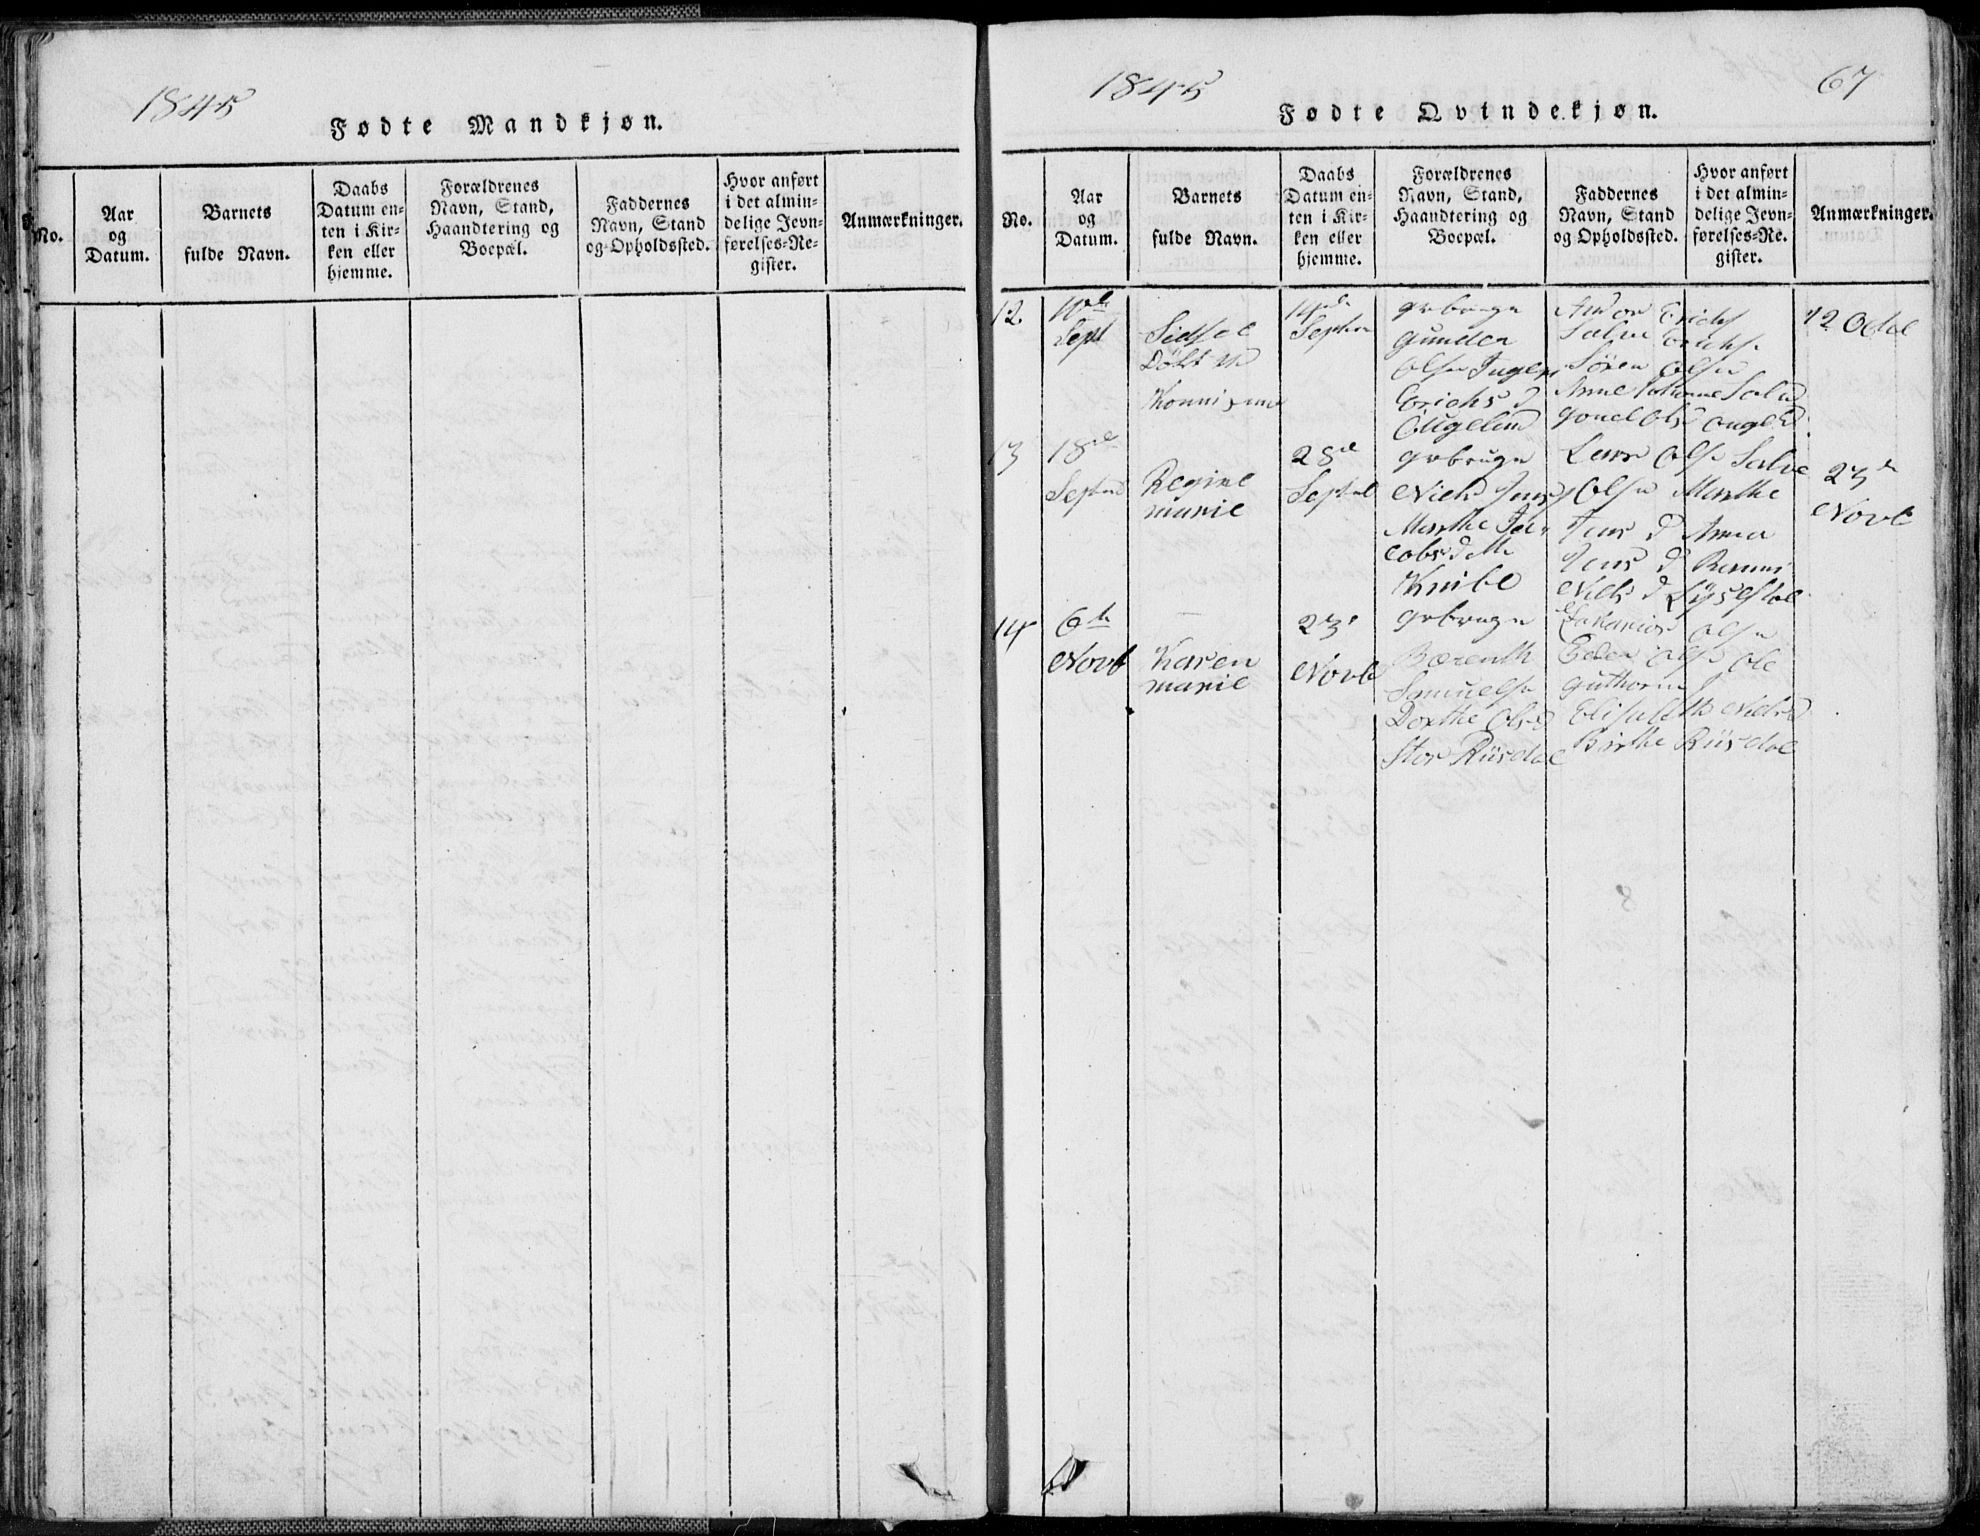 1845
Fødte Mandkjøn.
No.
Aar
og
Datum.
Barnets
fulde Navn.
Daabs
Datum en-
ten i Kir-
ken eller
hjemme.
Forældrenes
Navn, Stand,
Haandtering og
Boepæl.
Faddernes
Navn, Stand
og Opholdssted.
Hvor anført
i det almin-
delige Jevn-
førelses-Re-
gister.
Anmærkninger.
1845
67
Fødte Qvindekjøn.
No.
Aar
og
Datum.
Barnets
fulde Navn.
Daabs
Datum en-
ten i Kir-
ken eller
hjemme.
Forældrenes
Navn, Stand,
Haandtering og
Boepæl.
Faddernes
Navn, Stand
og Opholdssted.
Hvor anført
i det almin-
delige Jevn-
førelses-Re-
gister.
Anmærkninger.
12
Sept
Sidsel
Døbt
14de
Septbr
grbruger
Gunder
Olsen Inger
Erichs d
Erichs
Salve Erichs
Søren Olsen
Anne Salve d
12 Octbe
13
18de
Septbr
Regine
marie
28de
Septbe
grbruger
Niels Jens
Marthe Ja-
cobs datte
Knibe
Lars Ols Salve
Olsen Marthe
Jens d Anna
Jens d
Niels d
23de
Novbe
14
6te
Novb
Karen
marie
23'
Novbe
grbruger
Berenth
Samuels
Dorthe Ols d
Stor Riisdal
Zakarias Olsen
Peder Ols Ole
Guthorm
Elisabeth Niels d
Birthe Riisdal